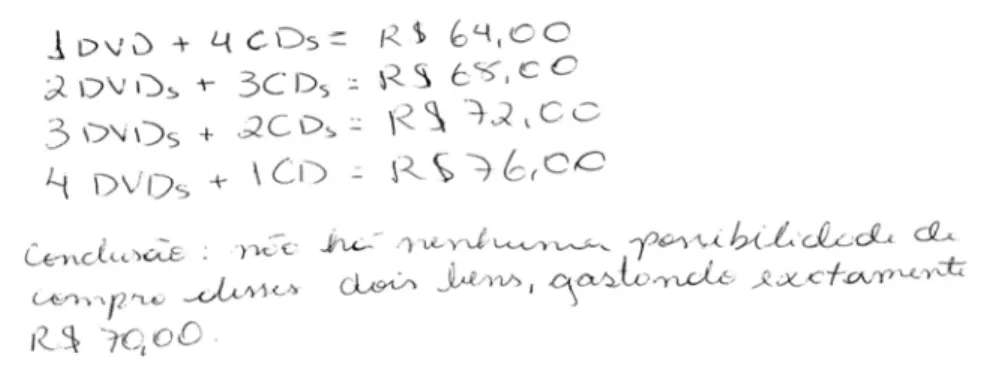 1 DVD + 4 CDs = R$ 64,00
2 DVDs + 3CDs = R$ 68,00
3 DVDs + 2CDs = R$ 72,00
4 DVDs + 1CD = R$ 76,00
Conclusão : não há nenhuma possibilidade de
compra desses dois bens, gastando exatamente
R$ 70,00.